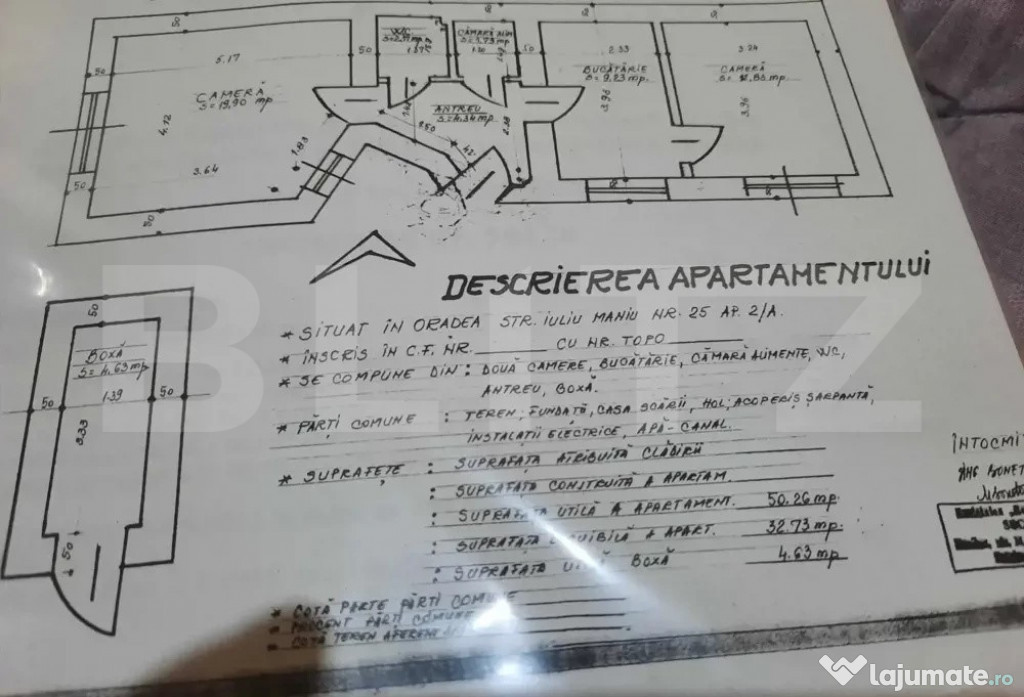 50
50
5.17
CAMERĂ
S=19.90 mp
4.72
3.64
1.83
50
50
50
WC
1.37
CĂMARĂ ALIM
1.20
50
ANTREU
S=4.34 mp.
2.50
2.33
BUCĂTĂRIE
S=9.23 mp.
3.96
3.24
CAMERĂ
S=12.83 mp.
3.96
DESCRIEREA APARTAMENTULUI
* SITUAT ÎN ORADEA STR. IULIU MANIU NR. 25 AP. 2/A.
* ÎNSCRIS ÎN C.F. NR. CU NR. TOPO
* SE COMPUNE DIN : DOUĂ CAMERE, BUCĂTĂRIE, CĂMARĂ ALIMENTE, WC,
ANTREU, BOXĂ.
* PĂRȚI COMUNE : TEREN, FUNDAȚII, CASA SCĂRII, HOL, ACOPERIȘ ȘARPANTĂ,
INSTALAȚII ELECTRICE, APĂ-CANAL.
* SUPRAFEȚE : SUPRAFAȚA ATRIBUITĂ CLĂDIRII
: SUPRAFAȚA CONSTRUITĂ A APARTAM.
: SUPRAFAȚA UTILĂ A APARTAMENT. 50.26 mp.
: SUPRAFAȚA LOCUIBILĂ A APART. 32.73 mp.
: SUPRAFAȚA UTILĂ BOXĂ 4.63 mp
* COTĂ PARTE PĂRȚI COMUNE
- PROCENT PĂRȚI COMUNE
- COTĂ TEREN AFERENT
50
BOXĂ
S=4.63 mp.
1.39
50
50
3.33
50
ÎNTOCMIT
BLITZ
lajumate.ro